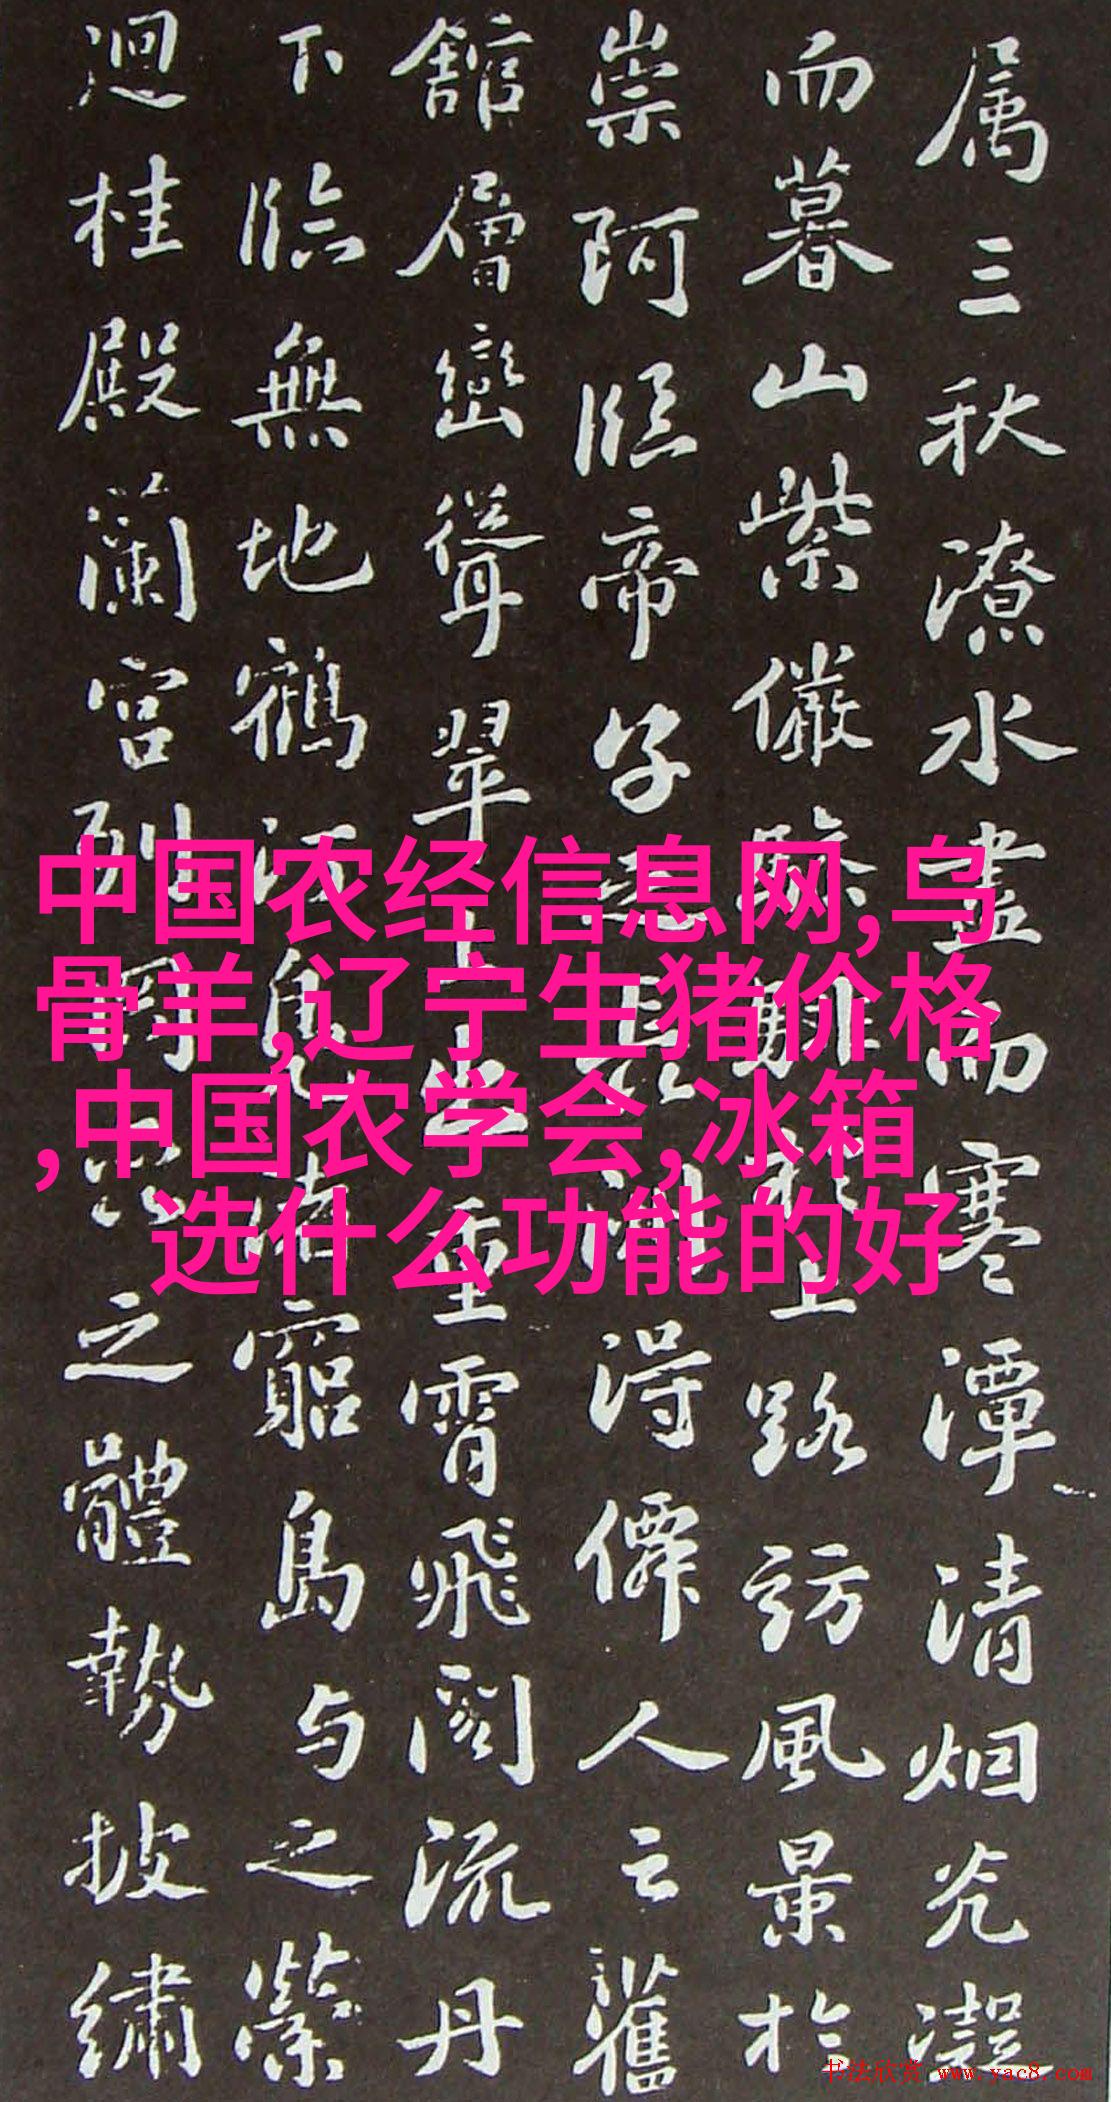 属三秋潦水盡而寒潭清烟光凝
而暮山紫儼驂騑於上路訪風景於
崇阿臨帝子長洲得僊人云舊
館層巒聳翠上出重霄飛閣流丹
下臨無地鶴汀鳧渚窮島与之縈
迴桂殿蘭宮列岡之體勢披繡
中国农经信息网,乌
骨羊,辽宁生猪价格
,中国农学会,冰箱
选什么功能的好
书法欣赏 www.yac8.com